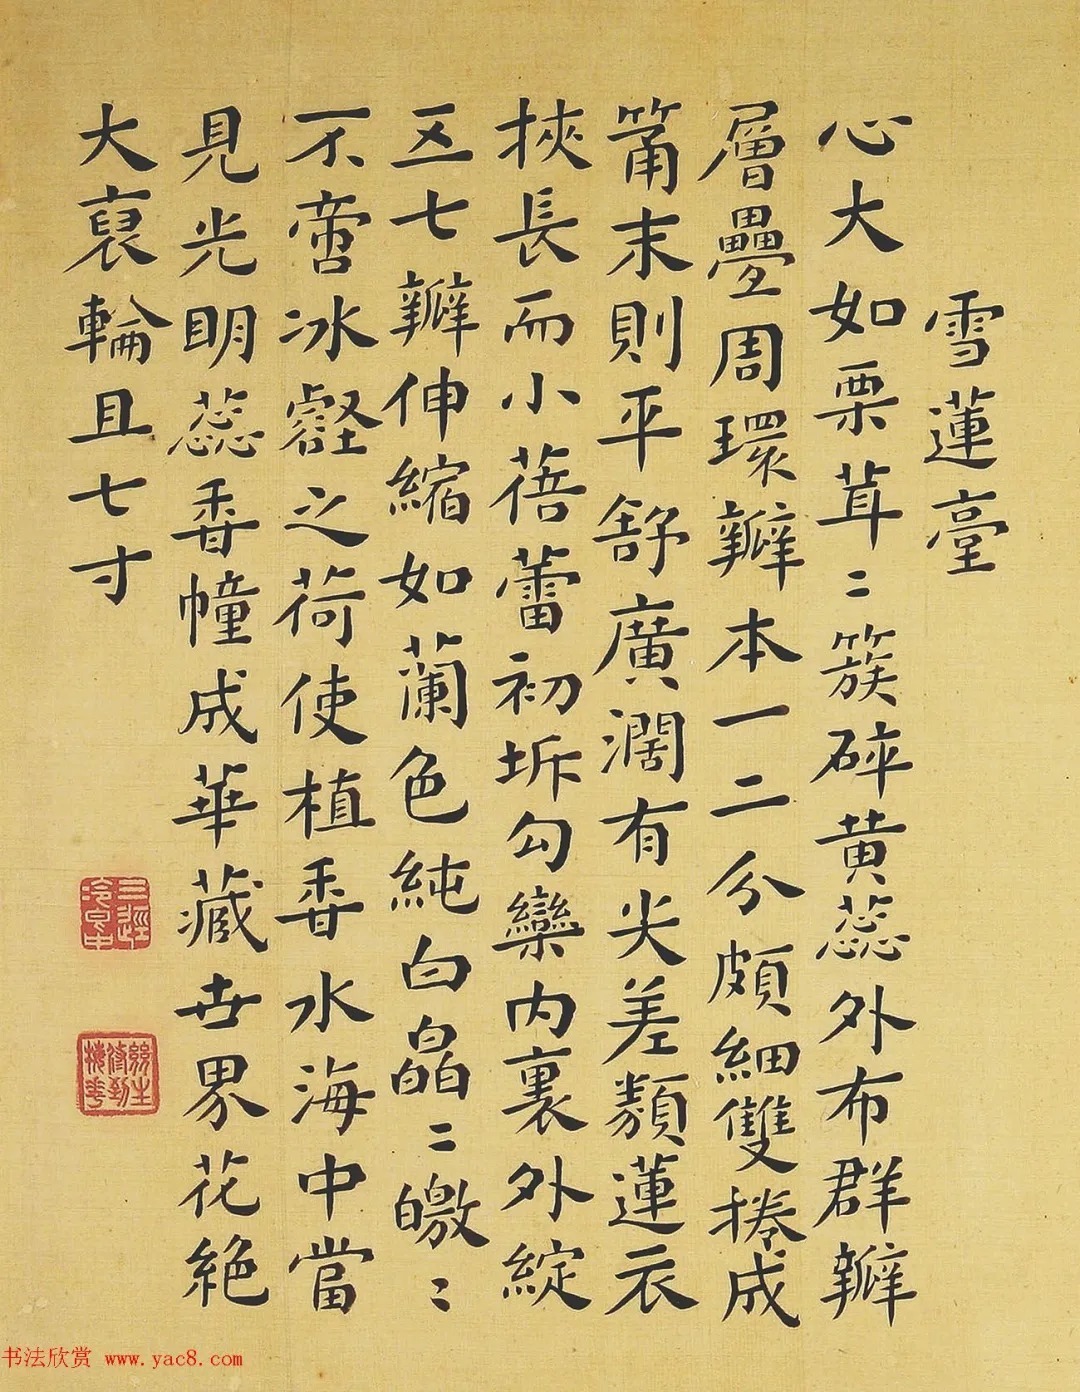 雪蓮臺
心大如栗茸〻簇碎黃蕊外布群瓣
層疊周環瓣本一二分頗細雙捲成
筩末則平舒廣濶有尖差類蓮衣
挾長而小蓓蕾初坼勾欒內裏外綻
五七瓣伸縮如蘭色純白皛〻皦〻
不啻冰壑之荷使植香水海中當
見光明蕊香幢成華藏世界花絕
大裒輪且七寸
書法欣赏 www.yac8.com